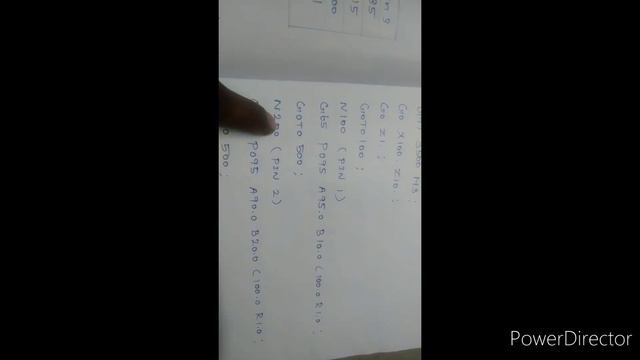 15
00
M3 ;
G0 X100 Z10. ;
G0 Z1. ;
GOTO 100 ;
N100 (PIN 1)
G65 P095 A95.0 B10.0 C100.0 R1.0 ;
GOTO 500 ;
N200 (PIN 2)
P095 A90.0 B20.0 C100.0 R1.0 ;
500 ;
PowerDirector